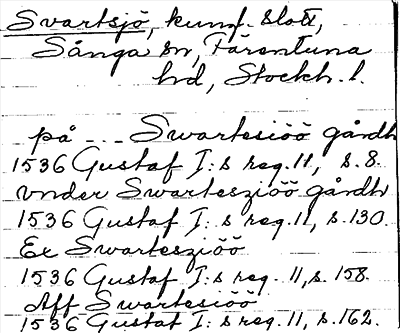 Svartsjö, kungl. slott,
Sånga sn, Färentuna
hd, Stockh. l.
på - - - Swartesiöö gårdh
1536 Gustaf I:s reg. 11, s. 8.
vnder Swartesziöö gårdh
1536 Gustaf I:s reg. 11, s. 130.
Ex Swartesziöö
1536 Gustaf I:s reg. 11, s. 158.
Aff Swartesiöö
1536 Gustaf I:s reg. 11, s. 162.